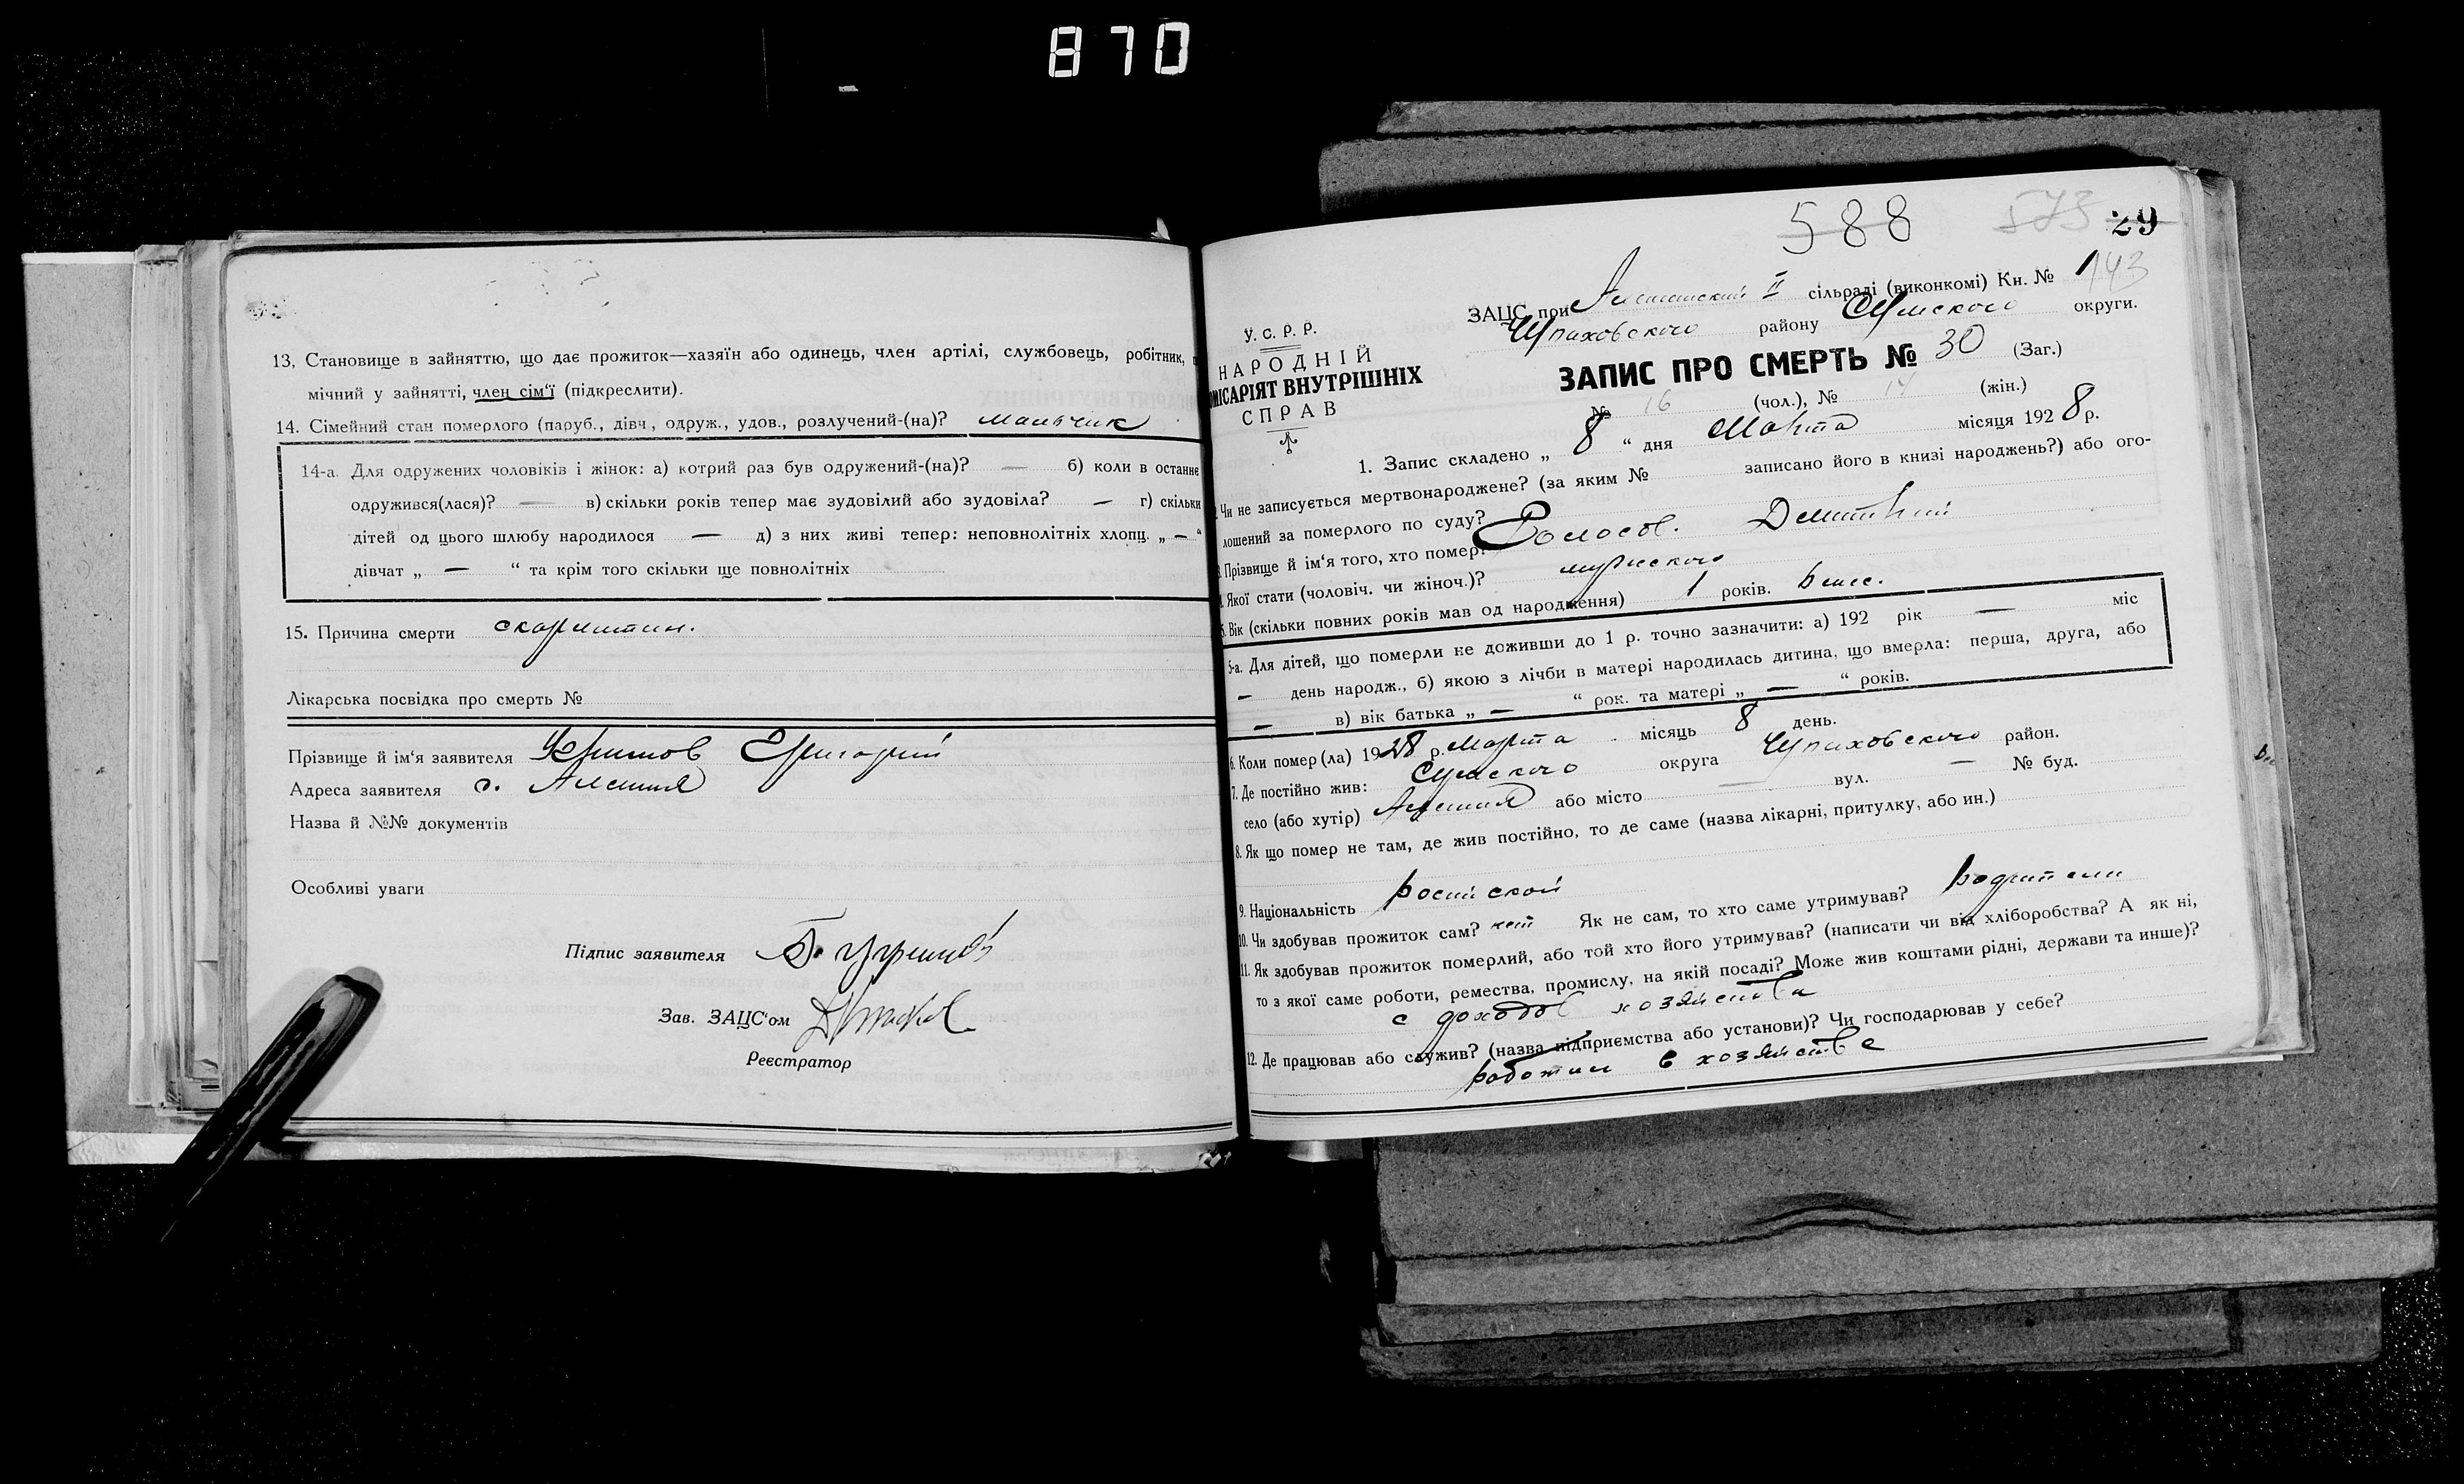 870
13. Становище в зайняттю, що дає прожиток—хазяїн або одинець, член артілі, службовець, робітник,
мічний у зайнятті, член сім‘ї (підкреслити).
14. Сімейний стан померлого (паруб., дівч., одруж., удов., розлучений-(на)? мальчик
14-а. Для одружених чоловіків і жінок: а) котрий раз був одружений-(на)? — б) коли в останнє
одружився(лася)? — в) скільки років тепер має зудовілий або зудовіла? — г) скільки
дітей од цього шлюбу народилося — д) з них живі тепер: неповнолітніх хлопц. „ — “
дівчат „ — “ та крім того скільки ще повнолітніх
15. Причина смерти скарлатин.
Лікарська посвідка про смерть №
Прізвище й ім‘я заявителя Григорий
Адреса заявителя с. Алешня
Назва й №№ документів
Особливі уваги
Підпис заявителя
Зав. ЗАЦС‘ом
Реєстратор
588 573 29
ЗАЦС при Алешанский II сільраді (виконкомі) Кн. № 143
Чупаховского району Сумского округи.
У. С. Р. Р.
НАРОДНІЙ
МІСАРІЯТ ВНУТРІШНІХ
СПРАВ
ЗАПИС ПРО СМЕРТЬ № 30 (Заг.)
№ 16 (чол.), № 14 (жін.)
1. Запис складено „ 8 “ дня Марта місяця 1928 р.
Чи не записується мертвонароджене? (за яким № записано його в книзі народжень?) або ого-
лошений за померлого по суду?
Прізвище й ім‘я того, хто помер? Дмитрий
Якої стати (чоловіч. чи жіноч.)? мужского
5. Вік (скільки повних років мав од народження) 1 років. 6 мес.
5-а. Для дітей, що померли не доживши до 1 р. точно зазначити: а) 192 рік — міс
— день народж., б) якою з лічби в матері народилась дитина, що вмерла: перша, друга, або
— в) вік батька „ — “ рок. та матері „ — “ років.
6. Коли помер(ла) 1928 р. Марта місяць 8 день.
7. Де постійно жив: Сумского округа Чупаховского район.
село (або хутір) Алешня або місто — вул. — № буд.
8. Як що помер не там, де жив постійно, то де саме (назва лікарні, притулку, або ин.)
9. Національність
10. Чи здобував прожиток сам? нет Як не сам, то хто саме утримував? родители
11. Як здобував прожиток померлий, або той хто його утримував? (написати чи від хліборобства? А як ні,
то з якої саме роботи, ремества, промислу, на якій посаді? Може жив коштами рідні, держави та инше)?
с доходов хозяйства
12. Де працював або служив? (назва підприємства або установи)? Чи господарював у себе?
в хозяйстве